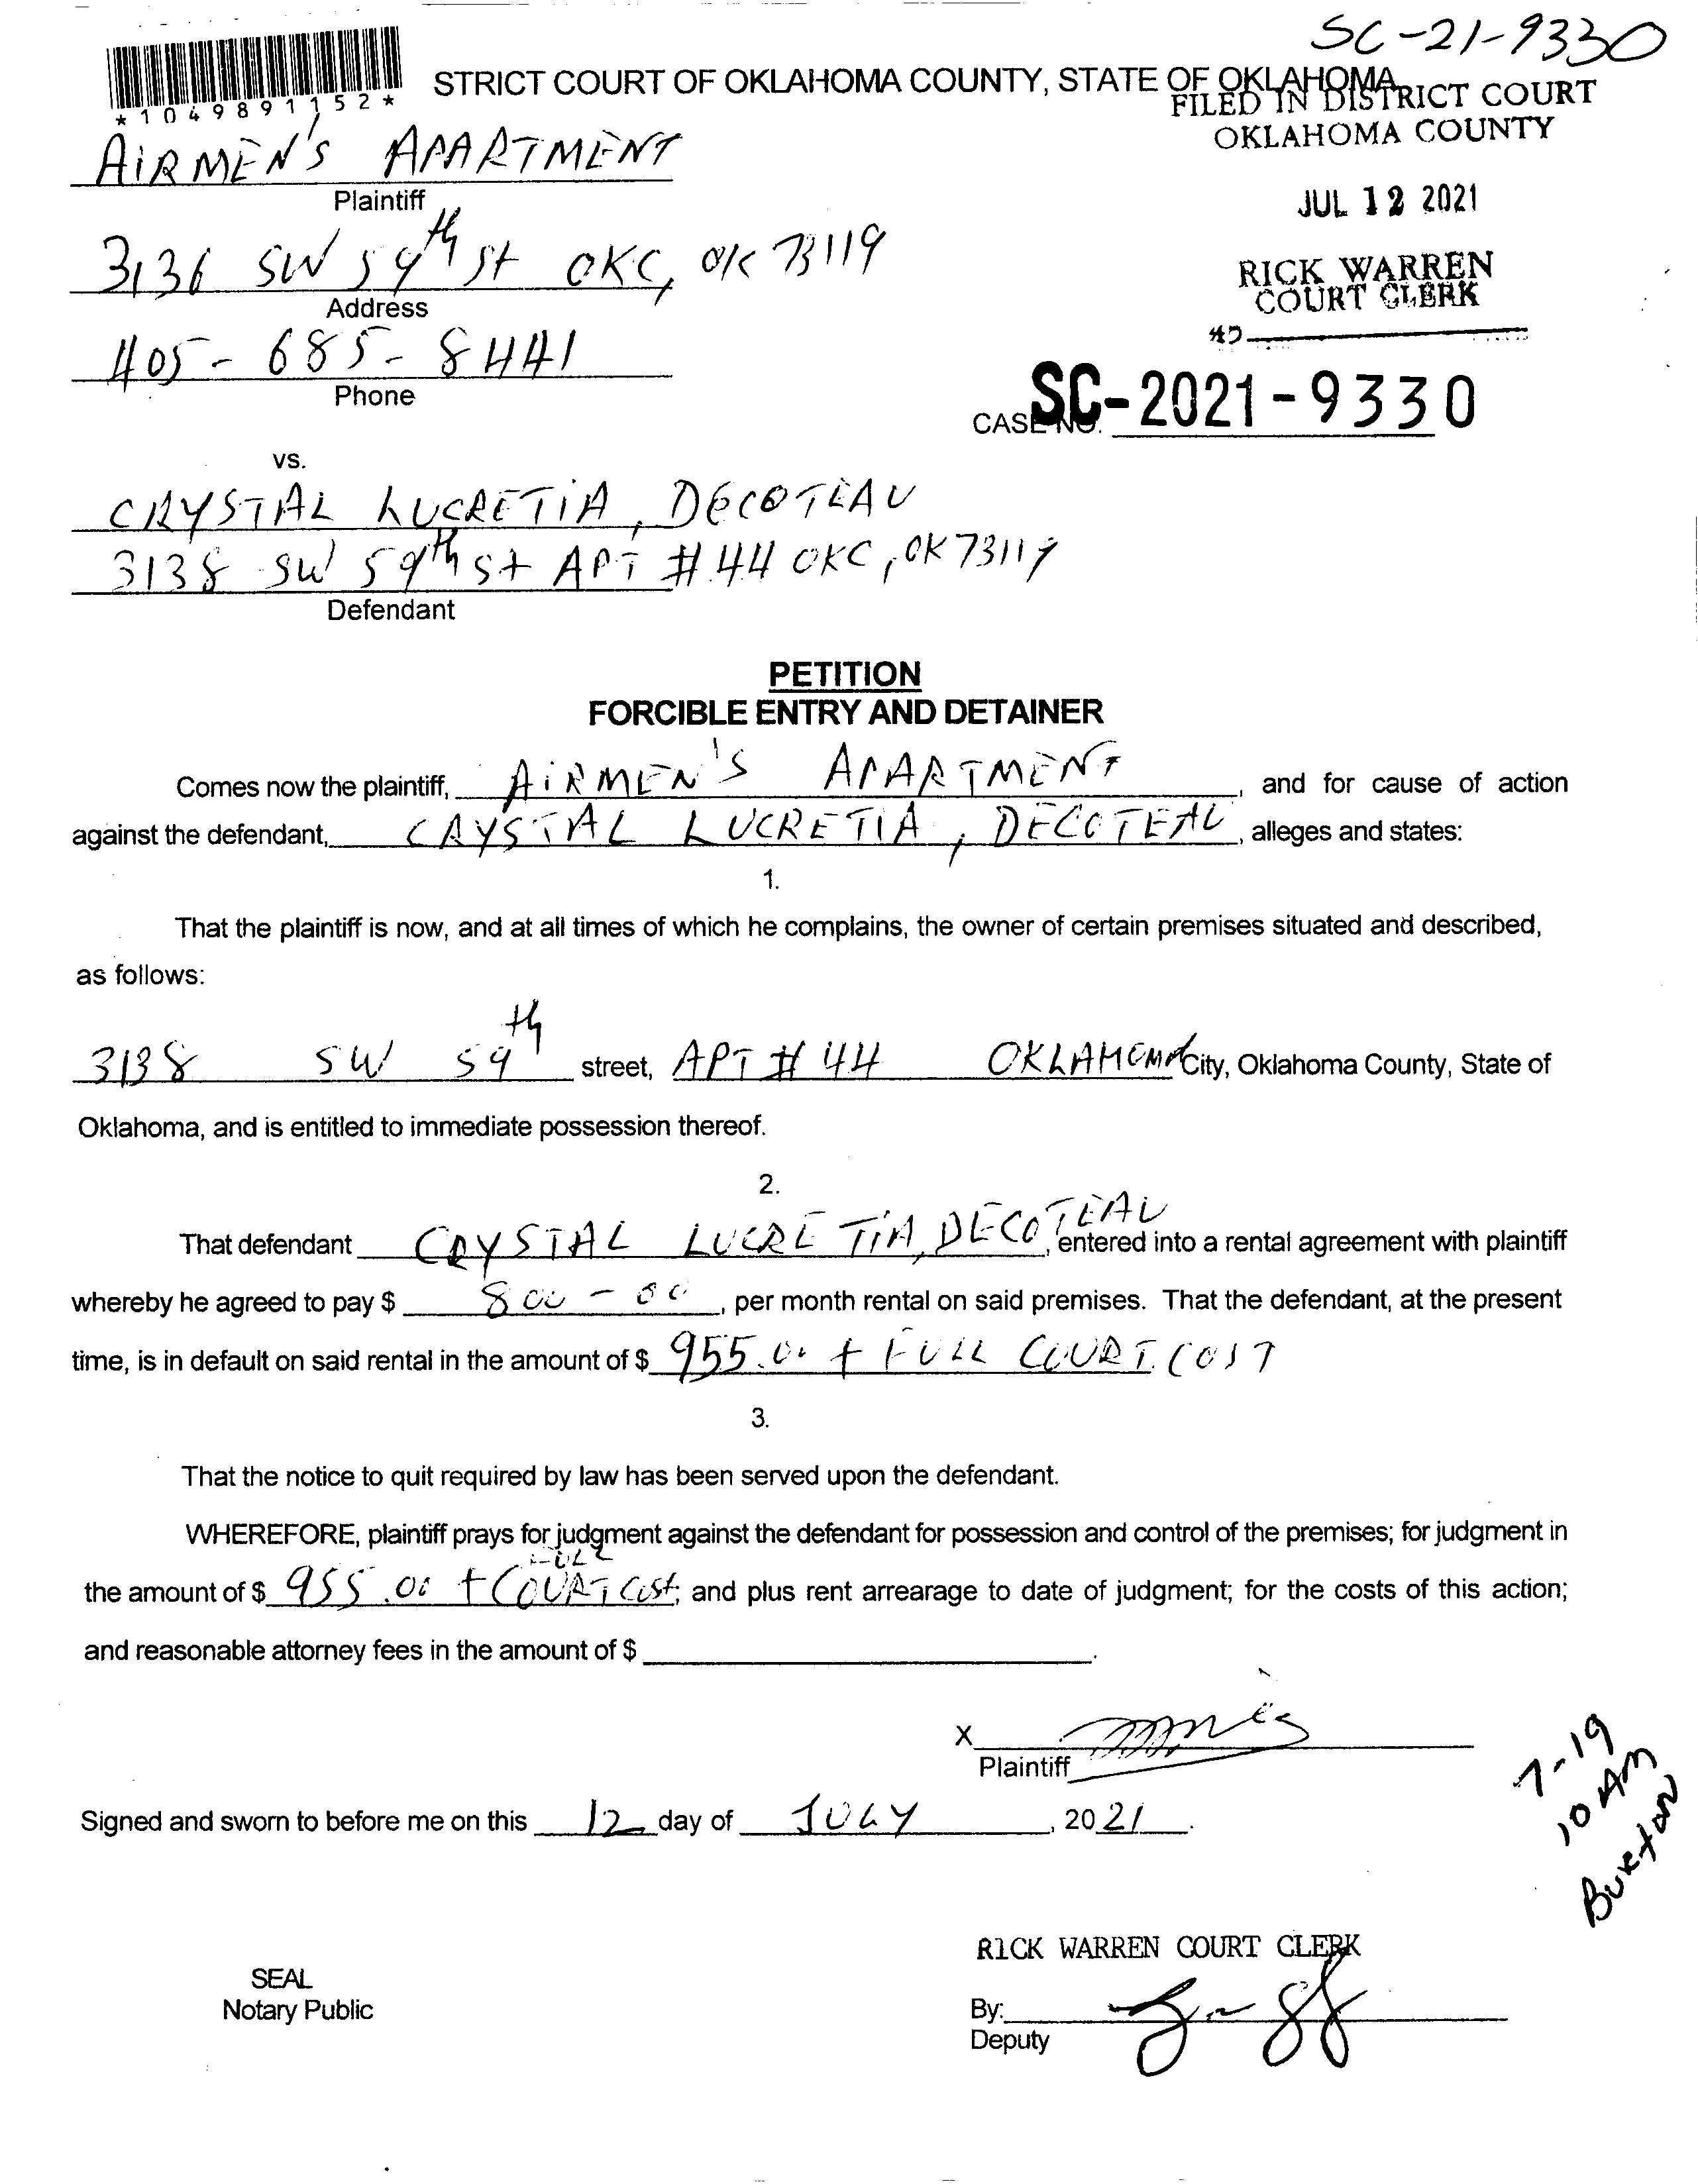 SC-21-9330
STRICT COURT OF OKLAHOMA COUNTY, STATE OF OKLAHOMA
*1049891152*
FILED IN DISTRICT COURT
OKLAHOMA COUNTY
JUL 12 2021
RICK WARREN
COURT CLERK
AIRMEN'S APARTMENT
Plaintiff
3136 SW 59th St OKC, OK 73119
Address
405-685-8441
Phone
CASE NO. SC-2021-9330
vs.
CRYSTAL LUCRETIA, DECOTEAU
3138 SW 59th St APT #44 OKC, OK 73119
Defendant
PETITION
FORCIBLE ENTRY AND DETAINER
Comes now the plaintiff, AIRMEN'S APARTMENT, and for cause of action
against the defendant, CRYSTAL LUCRETIA, DECOTEAU, alleges and states:
1.
That the plaintiff is now, and at all times of which he complains, the owner of certain premises situated and described,
as follows:
3138 SW 59th street, APT # 44 OKLAHOMA City, Oklahoma County, State of
Oklahoma, and is entitled to immediate possession thereof.
2.
That defendant CRYSTAL LUCRETIA, DECOTEAU, entered into a rental agreement with plaintiff
whereby he agreed to pay $ 800-00, per month rental on said premises. That the defendant, at the present
time, is in default on said rental in the amount of $ 955.00 + FULL COURT COST
3.
That the notice to quit required by law has been served upon the defendant.
WHEREFORE, plaintiff prays for judgment against the defendant for possession and control of the premises; for judgment in
the amount of $ 955.00 + FULL COURT Cost; and plus rent arrearage to date of judgment; for the costs of this action;
and reasonable attorney fees in the amount of $ .
X
Plaintiff
Signed and sworn to before me on this 12 day of JULY, 2021.
7-19
10 AM
Buxton
RICK WARREN COURT CLERK
SEAL
Notary Public
By:
Deputy